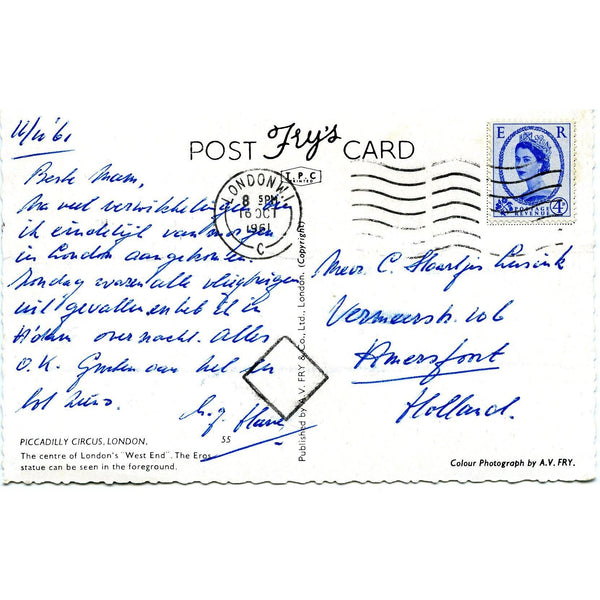 POST Fry's CARD
E R
POSTAGE
REVENUE
4D
T.P.C
LONDON W.
8 PM
16 OCT
1961
C
Beste Mam,
Na veel verwikkelingen ben
ik eindelijk van morgen
in London aangekomen.
Zondag waren alle vliegtuigen
uitgevallen en heb ik in
A'dam overnacht. Alles
O.K. Groeten van hel en
tot ziens
Mevr. C.
Vermeerstr. 106
Amersfoort
Holland.
PICCADILLY CIRCUS, LONDON. 55
The centre of London's "West End". The Eros
statue can be seen in the foreground.
Published by A.V. FRY & Co., Ltd., London. (Copyright)
Colour Photograph by A.V. FRY.